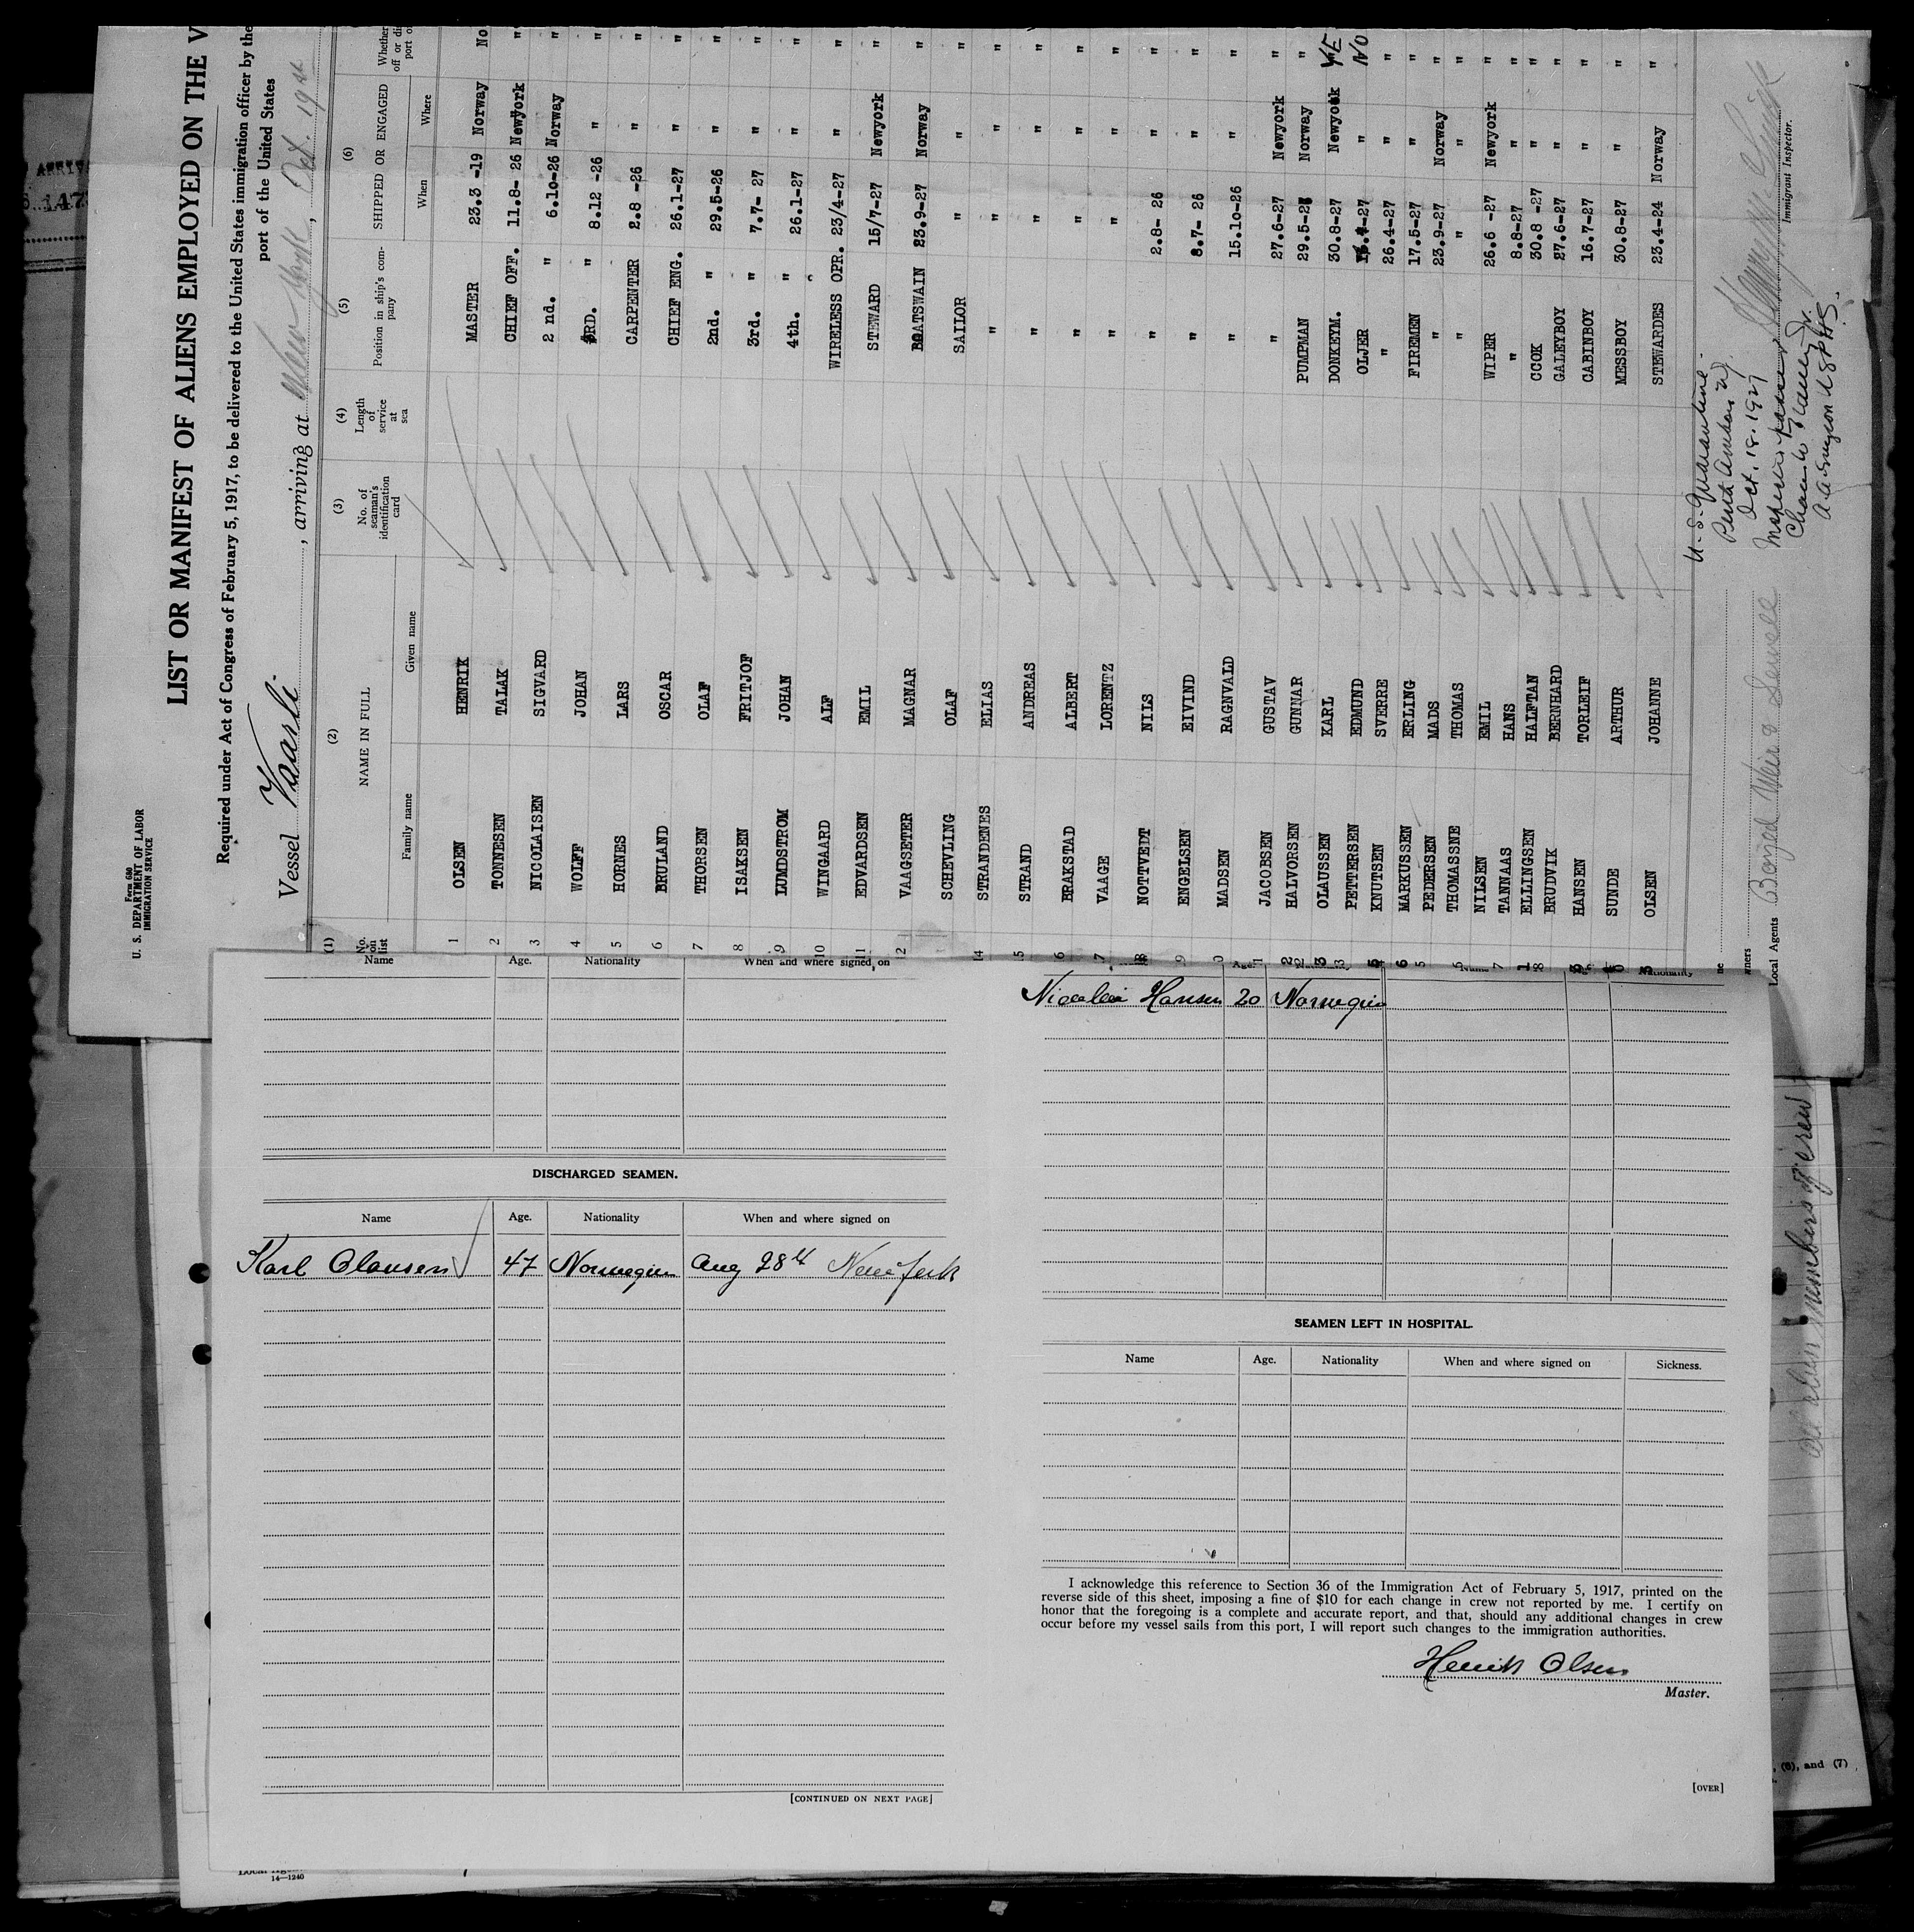 Form 680
U. S. DEPARTMENT OF LABOR
IMMIGRATION SERVICE
LIST OR MANIFEST OF ALIENS EMPLOYED ON THE V
Required under Act of Congress of February 5, 1917, to be delivered to the United States immigration officer by the
port of the United States
Vessel Vaarli, arriving at New York, Oct. 19th
(1) (2) (3) (4) (5) (6)
No. on list NAME IN FULL No. of seaman's identification card Length of service at sea Position in ship's company SHIPPED OR ENGAGED Whether
Family name Given name When Where
1 OLSEN HENRIK MASTER 23.3 -19 Norway No
2 TONNESEN TALAK CHIEF OFF. 11.8- 26 Newyork "
3 NICOLAISEN SIGVARD 2 nd. " 6.10-26 Norway "
4 WOLFF JOHAN 3RD. " 8.12 -26 " "
5 HORNES LARS CARPENTER 2.8 -26 " "
6 BRULAND OSCAR CHIEF ENG. 26.1-27 " "
7 THORSEN OLAF 2nd. " 29.5-26 " "
8 ISAKSEN FRITJOF 3rd. " 7.7- 27 " "
9 LUMDSTROM JOHAN 4th. " 26.1-27 " "
10 WINGAARD ALF WIRELESS OPR. 23/4-27 " "
11 EDVARDSEN EMIL STEWARD 15/7-27 Newyork "
12 VAAGSETER MAGNAR BOATSWAIN 23.9-27 Norway "
SCHEVLING OLAF SAILOR " " "
14 STRANDENES ELIAS " " " "
5 STRAND ANDREAS " " " "
6 BRAKSTAD ALBERT " " " "
7 VAAGE LORENTZ " " " "
18 NOTTVEDT NILS " 2.8- 26 " "
9 ENGELSEN EIVIND " 8.7- 26 " "
0 MADSEN RAGNVALD " 15.10-26 " "
1 JACOBSEN GUSTAV " 27.6-27 Newyork "
2 HALVORSEN GUNNAR PUMPMAN 29.5-26 Norway "
3 OLAUSSEN KARL DONKEYM. 30.8-27 Newyork
PETTERSEN EDMUND OLJER " NO
KNUTSEN SVERRE " 26.4-27 " "
MARKUSSEN ERLING FIREMEN 17.5-27 " "
PEDERSEN MADS " 23.9-27 Norway "
THOMASSNE THOMAS " " " "
NILSEN EMIL WIPER 26.6 -27 Newyork "
TANNAAS HANS " 8.8-27 " "
ELLINGSEN HALFTAN COOK 30.8 -27 " "
BRUDVIK BERNHARD GALEYBOY 27.6-27 " "
HANSEN TORLEIF CABINBOY 16.7-27 " "
SUNDE ARTHUR MESSBOY 30.8-27 " "
OLSEN JOHANNE STEWARDES 23.4-24 Norway "
U. S. Quarantine
Perth Amboy N.J.
Oct. 18. 1927
A. A. Surgeon U S P H S.
Immigrant Inspector.
Local Agents
Name Age. Nationality When and where signed on
DISCHARGED SEAMEN.
Name Age. Nationality When and where signed on
Karl Olausen 47 Norwegian Aug 28th New York
[CONTINUED ON NEXT PAGE]
Nicolai Hansen 20 Norwegian
SEAMEN LEFT IN HOSPITAL.
Name Age. Nationality When and where signed on Sickness.
I acknowledge this reference to Section 36 of the Immigration Act of February 5, 1917, printed on the
reverse side of this sheet, imposing a fine of $10 for each change in crew not reported by me. I certify on
honor that the foregoing is a complete and accurate report, and that, should any additional changes in crew
occur before my vessel sails from this port, I will report such changes to the immigration authorities.
Henrik Olsen
Master.
[OVER]
members of crew
, (6), and (7)
14—1240